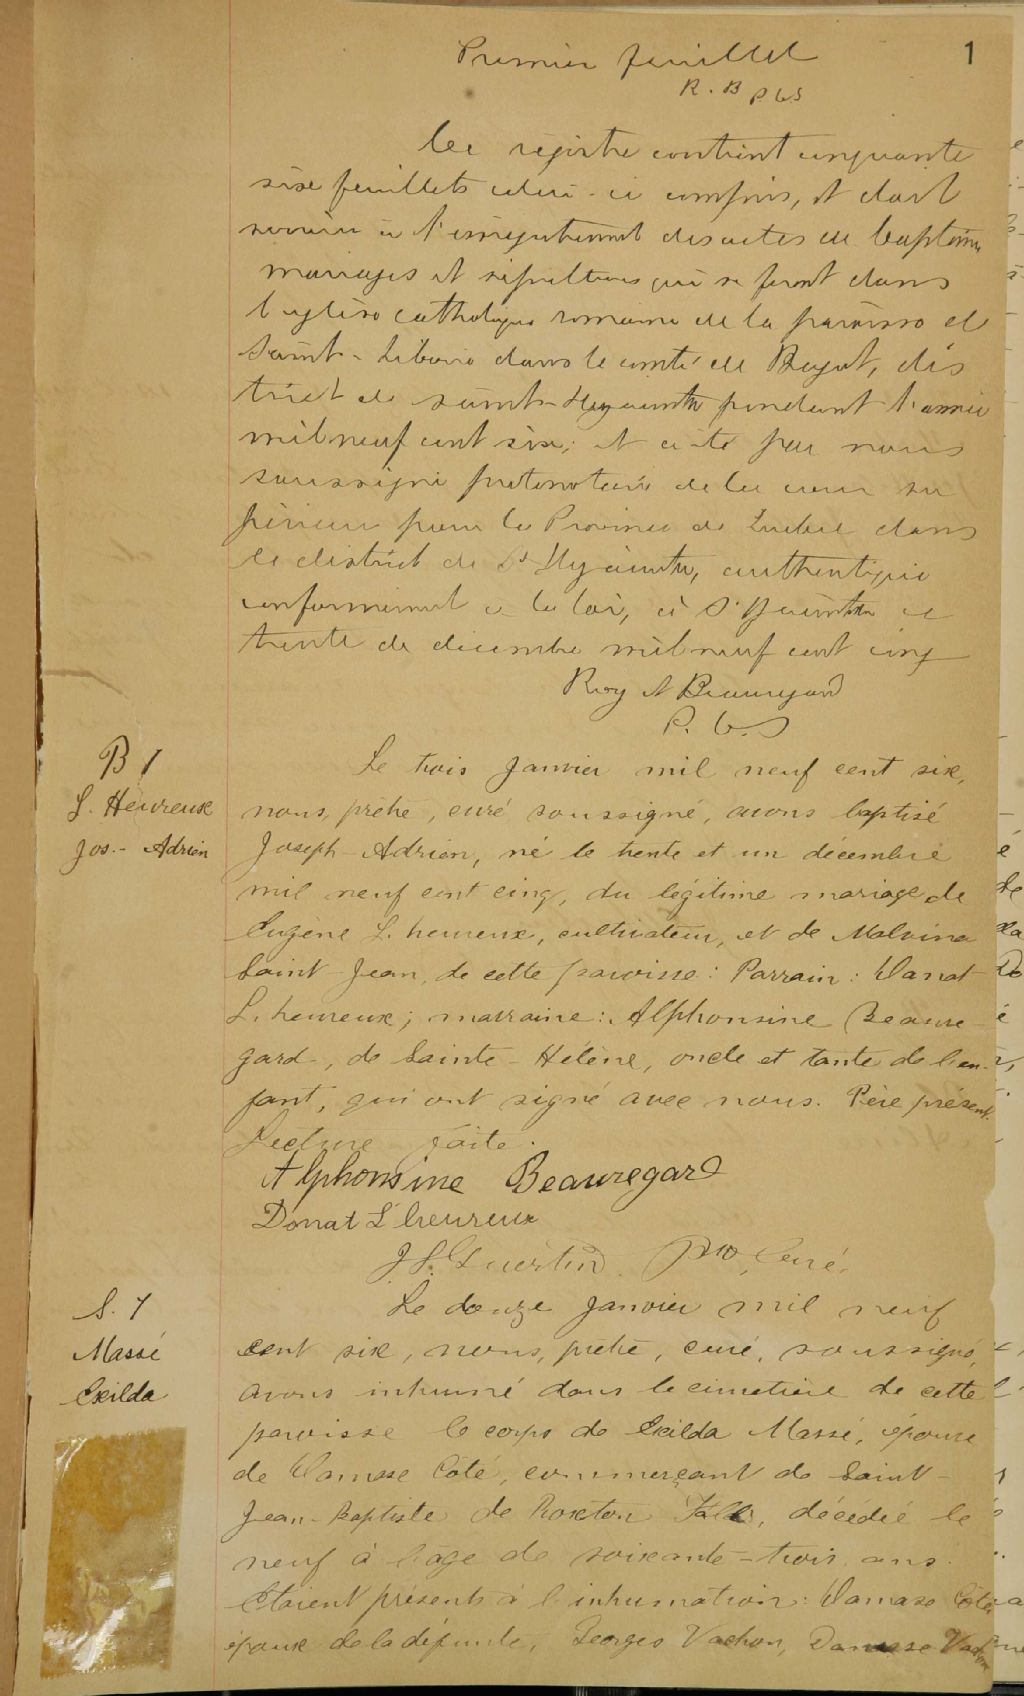 1
Premier feuillet
R. B P.C.S
Ce registre contient cinquante
six feuillets celui-ci compris, et doit
servir à l'enregistrement des actes de baptêmes
mariages et sépultures qui se feront dans
l'église catholique romaine de la paroisse de
Saint-Liboire dans le comté de Bagot, dis
trict de Saint-Hyacinthe pendant l'année
mil neuf cent six; et a été par nous
soussigné protonotaire de la cour su
périeure pour la Province de Québec dans
le district de St Hyacinthe, authentiqué
conformément à la loi, à St Hyacinthe ce
trente de décembre mil neuf cent cinq
Roy et Beauregard
P. C. S
B 1
L'Heureux
Jos.- Adrien
Le trois janvier mil neuf cent six,
nous, prêtre, curé soussigné, avons baptisé
Joseph-Adrien, né le trente et un décembre
mil neuf cent cinq, du légitime mariage de
Eugène L'heureux, cultivateur, et de Malvina
Saint-Jean, de cette paroisse: Parrain: Donat
L'heureux; marraine: Alphonsine Beaure-
gard, de Sainte-Hélène, oncle et tante de l'en-
fant, qui ont signé avec nous. Père présent.
Lecture faite.
Alphonsine Beauregard
Donat L'heureux
Guertin Ptre, Curé.
S. 1
Massé
Exilda
Le douze janvier mil neuf
cent six, nous, prêtre, curé, soussigné,
avons inhumé dans le cimetière de cette
paroisse le corps de Exilda Massé, épouse
de Damase Coté, commerçant de Saint-
Jean-Baptiste de Roxton Falls, décédée le
neuf à l'âge de soixante-trois ans.
Etaient présents à l'inhumation: Damase Coté,
époux de la défunte, Georges Vachon, Damase Vachon